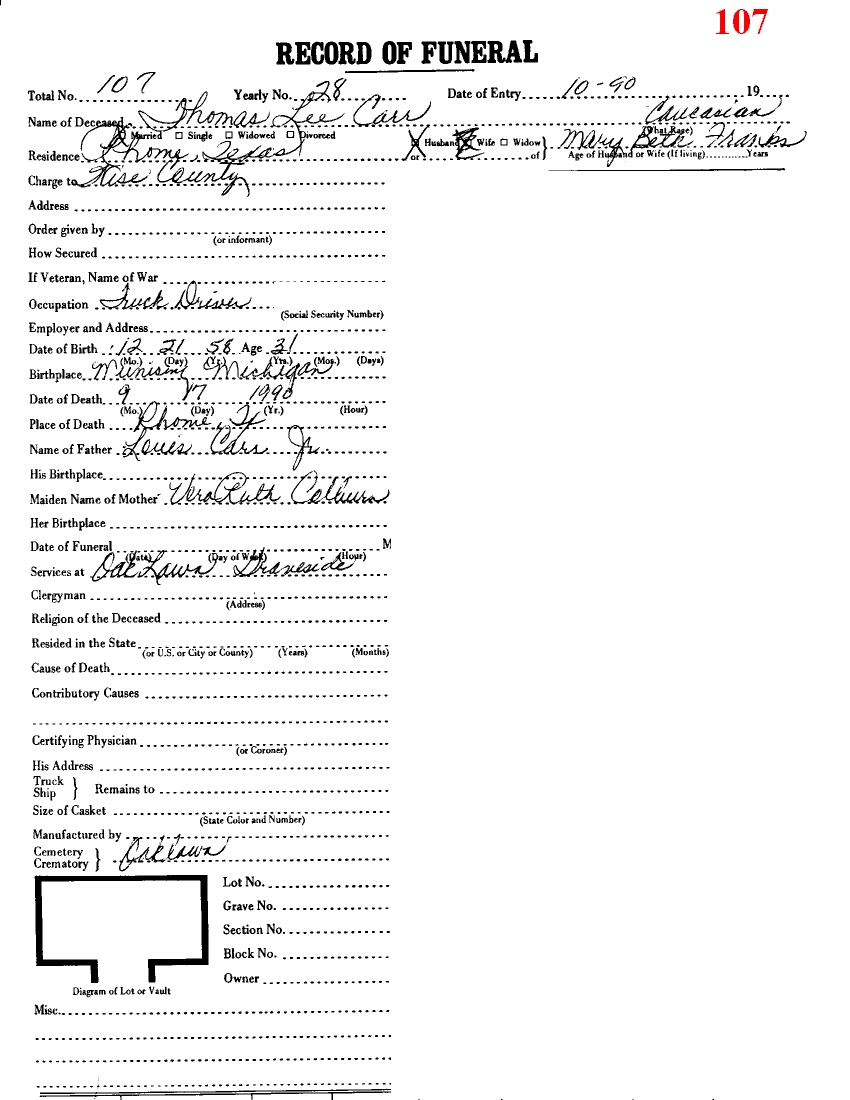 107
RECORD OF FUNERAL
Total No. 107 Yearly No. 28 Date of Entry 10-90 19
Name of Deceased Thomas Lee Carr Caucasian
Married Single Widowed Divorced (What Race)
Residence Rhome, Texas Husband Wife Widow } Mary Beth Franks
or of Age of Husband or Wife (If living) Years
Charge to Wise County
Address
Order given by
(or informant)
How Secured
If Veteran, Name of War
Occupation Truck Driver
(Social Security Number)
Employer and Address
Date of Birth 12 21 58 Age 31
(Mo.) (Day) (Yr.) (Yrs.) (Mos.) (Days)
Birthplace Munising Michigan
Date of Death 9 17 1990
(Mo.) (Day) (Yr.) (Hour)
Place of Death Rhome, Tx
Name of Father Louis Carr Jr.
His Birthplace
Maiden Name of Mother Vera Ruth
Her Birthplace
Date of Funeral M
(Date) (Day of Week) (Hour)
Services at Oak Lawn Graveside
Clergyman
(Address)
Religion of the Deceased
Resided in the State
(or U.S. or City or County) (Years) (Months)
Cause of Death
Contributory Causes
Certifying Physician
(or Coroner)
His Address
Truck
Ship } Remains to
Size of Casket
(State Color and Number)
Manufactured by
Cemetery
Crematory } Oaklawn
Lot No.
Grave No.
Section No.
Block No.
Owner
Diagram of Lot or Vault
Misc.